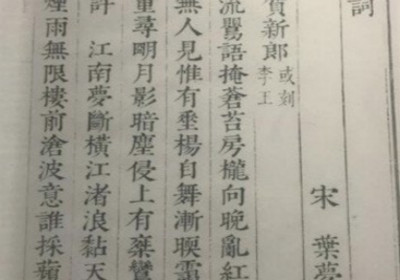 詞
宋 葉夢
賀新郎 或刻李王
流鶯語掩蒼苔房櫳向晚亂紅
無人見惟有垂楊自舞漸暖靄
重尋明月影暗塵侵上有乘鸞
許 江南夢斷橫江渚浪黏天
煙雨無限樓前滄波意誰採蘋